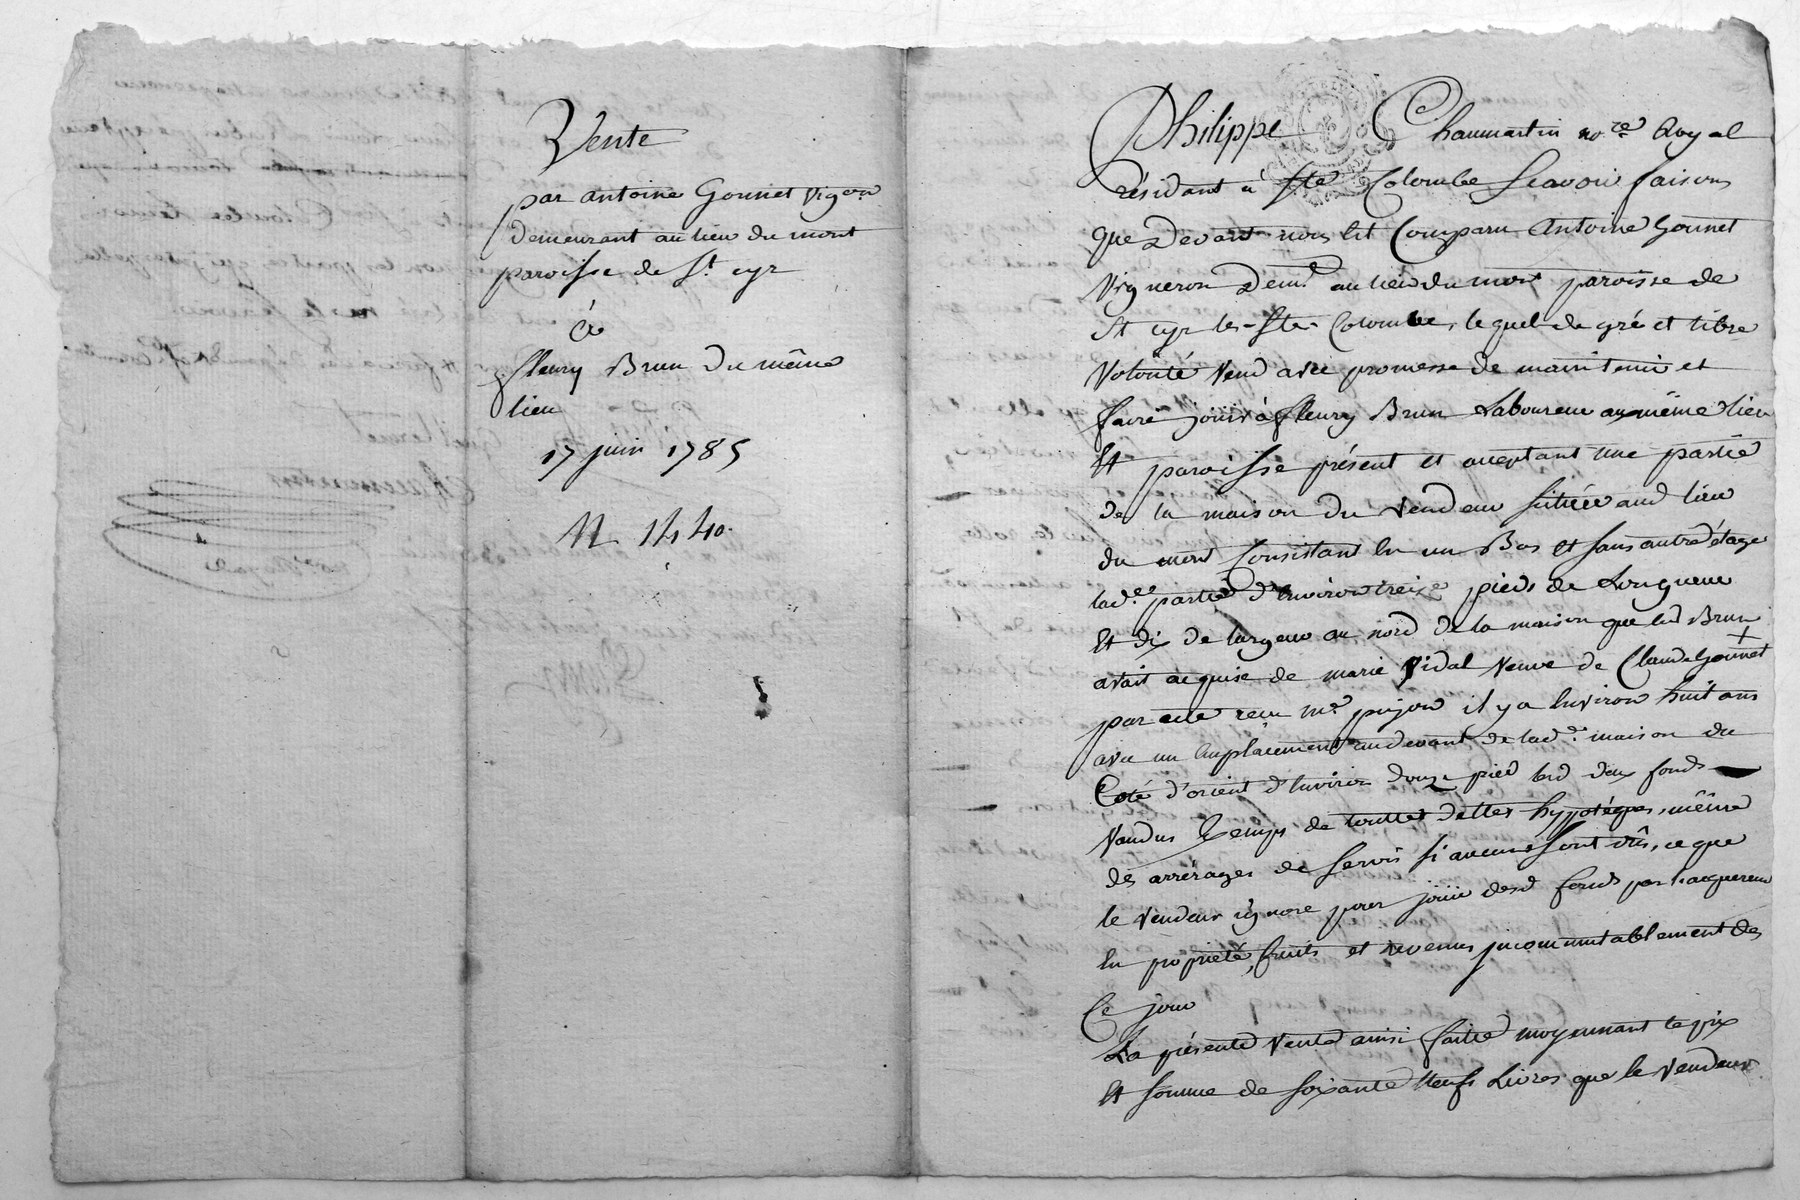 Vente
par antoine Gonnet vigon
demeurant au lieu du mont
paroisse de St cyr
à
fleury Brun du même
lieu
17 juin 1785
N 1440.
Philippe Chaumartin nore Royal
résidant à Ste Colombe Scavoir faisons
que devant nous Est Comparu Antoine Gonnet
vigneron demt au lieu du mont paroisse de
St cyr les-Ste-Colombe, lequel de gré et libre
volonté vend avec promesse de maintenir et
faire jouir à fleury Brun Laboureur au même lieu
Et paroisse présent et acceptant une partie
de la maison du vendeur située aud lieu
du mont Consistant En un Bas Et sans autre étage
lade partie d'Environ treize pieds de Longueur
Et dix de largeur au nord de la maison que led Brun
avait acquise de marie vidal veuve de Claude Gonnet
par acte recu Me pujon il y a Environ huit ans
avec un Emplacement audevant de lade maison du
Coté d'orient d'Environ douze pied lesd deux fonds
vendus Exemps de touttes dettes hypotéques, même
des arrérages de servis si aucuns sont dûs, ce que
le vendeur ignore pour jouir desd fonds par l'acquereur
En propriété, fruits et revenus incommutablement des
Ce jour
La présente vente ainsi faite moyennant le prix
Et somme de soixante Neufs Livres que le vendeur